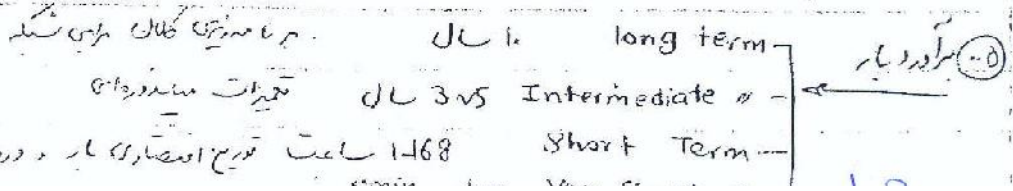 برآورد بار
long term ۱۰ سال برنامه‌ریزی کلان برای شبکه
Intermediate 〃 3~5 سال تعمیرات میاندوره‌ای
Short Term 1-168 ساعت توزیع اقتصادی بار و